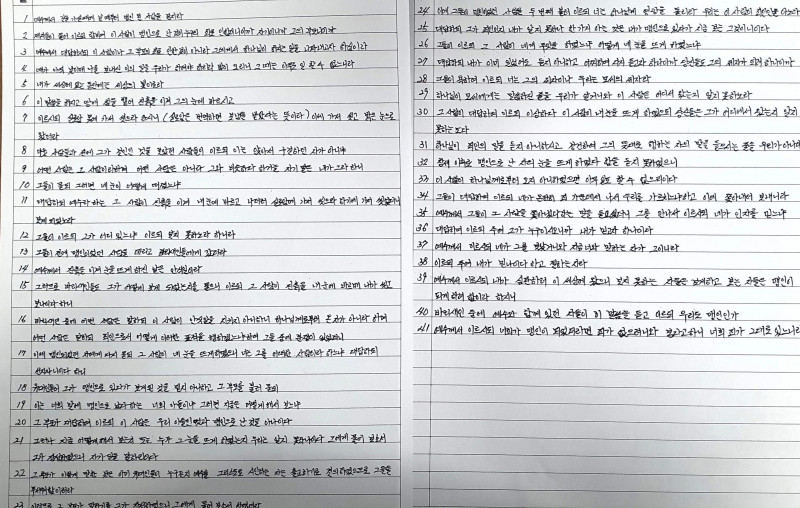 1 예수께서 길을 가실때에 날 때부터 맹인 된 사람을 보신지라
2 제자들이 물어 이르되 랍비여 이 사람이 맹인으로 난 것이 누구의 죄로 인함이니이까 자기니이까 그의 부모니이까
3 예수께서 대답하시되 이 사람이나 그 부모의 죄로 인한 것이 아니라 그에게서 하나님이 하시는 일을 나타내고자 하심이라
4 때가 아직 낮이매 나를 보내신 이의 일을 우리가 하여야 하리라 밤이 오리니 그 때는 아무도 일 할 수 없느니라
5 내가 세상에 있는 동안에는 세상의 빛이로라
6 이 말씀을 하시고 땅에 침을 뱉어 진흙을 이겨 그의 눈에 바르시고
7 이르시되 실로암 못에 가서 씻으라 하시니 (실로암은 번역하면 보냄을 받았다는 뜻이라) 이에 가서 씻고 밝은 눈으로
왔더라
8 이웃 사람들과 전에 그가 걸인인 것을 보았던 사람들이 이르되 이는 앉아서 구걸하던 자가 아니냐
9 어떤 사람은 그 사람이라하며 어떤 사람은 아니라 그와 비슷하다 하거늘 자기 말은 내가 그라 하니
10 그들이 묻되 그러면 네 눈이 어떻게 떠졌느냐
11 대답하되 예수라 하는 그 사람이 진흙을 이겨 내 눈에 바르고 나더러 실로암에 가서 씻으라 하기에 가서 씻었더니
보게 되었노라
12 그들이 이르되 그가 어디 있느냐 이르되 알지 못하노라 하니라
13 그들이 전에 맹인이었던 사람을 데리고 바리새인들에게 갔더라
14 예수께서 진흙을 이겨 눈을 뜨게 하신 날은 안식일이라
15 그러므로 바리새인들도 그가 어떻게 보게 되었는지를 물으니 이르되 그 사람이 진흙을 내 눈에 바르매 내가 씻고
보나이다 하니
16 바리새인 중에 어떤 사람은 말하되 이 사람이 안식일을 지키지 아니하니 하나님께로부터 온 자가 아니라 하며
어떤 사람은 말하되 죄인으로서 어떻게 이러한 표적을 행하겠느냐하여 그들 중에 분쟁이 있었더니
17 이에 맹인되었던 자에게 다시 묻되 그 사람이 네 눈을 뜨게하였으니 너는 그를 어떠한 사람이라 하느냐 대답하되
선지자니이다 하니
18 유대인들이 그가 맹인으로 있다가 보게된 것을 믿지 아니하고 그 부모를 불러 묻되
19 이는 너희 말에 맹인으로 났다하는 너희 아들이냐 그러면 지금은 어떻게 해서 보느냐
20 그 부모가 대답하여 이르되 이 사람이 우리 아들인것과 맹인으로 난 것을 아나이다
21 그러나 지금 어떻게해서 보는지 또는 누가 그 눈을 뜨게 하였는지 우리는 알지 못하나이다 그에게 물어 보소서
그가 장성하였으니 자기 일을 말하리이다
22 그 부모가 이렇게 말한 것은 이미 유대인들이 누구든지 예수를 그리스도로 시인하는 자는 출교하기로 결의하였으므로 그들을
무서워함이러라
23 이러므로 그 부모가 말하기를 그가 장성하였으니 그에게 물어 보소서 하였더라
24 이에 그들이 맹인이었던 사람을 두 번째 불러 이르되 너는 하나님께 영광을 돌리라 우리는 이 사람이 죄인인줄 아노라
25 대답하되 그가 죄인인지 내가 알지 못하나 한 가지 아는 것은 내가 맹인으로 있다가 지금 보는 그것이니이다
26 그들이 이르되 그 사람이 네게 무엇을 하였느냐 어떻게 네 눈을 뜨게 하였느냐
27 대답하되 내가 이미 일렀어도 듣지 아니하고 어찌하여 다시 듣고자 하나이까 당신들도 그의 제자가 되려 하나이까
28 그들이 욕하여 이르되 너는 그의 제자이나 우리는 모세의 제자라
29 하나님이 모세에게는 말씀하신 줄을 우리가 알거니와 이 사람은 어디서 왔는지 알지 못하노라
30 그 사람이 대답하여 이르되 이상하다 이 사람이 내 눈을 뜨게 하였으되 당신들은 그가 어디에서 왔는지 알지
못하는도다
31 하나님이 죄인의 말을 듣지 아니하시고 경건하여 그의 뜻대로 행하는 자의 말을 들으시는 줄을 우리가 아나이다
32 창세 이후로 맹인으로 난 자의 눈을 뜨게 하였다 함을 듣지 못하였으니
33 이 사람이 하나님께로부터 오지 아니하였으면 아무 일도 할 수 없으리이다
34 그들이 대답하여 이르되 네가 온전히 죄 가운데서 나서 우리를 가르치느냐하고 이에 쫓아내어 보내니라
35 예수께서 그들이 그 사람을 쫓아냈다하는 말을 들으셨더니 그를 만나사 이르시되 네가 인자를 믿느냐
36 대답하여 이르되 주여 그가 누구이시니까 내가 믿고자 하나이다
37 예수께서 이르시되 네가 그를 보았거니와 지금 너와 말하는 자가 그이니라
38 이르되 주여 내가 믿나이다 하고 절하는지라
39 예수께서 이르시되 내가 심판하러 이 세상에 왔으니 보지 못하는 자들은 보게하고 보는 자들은 맹인이
되게 하려 함이라 하시니
40 바리새인 중에 예수와 함께 있던 자들이 이 말씀을 듣고 이르되 우리도 맹인인가
41 예수께서 이르시되 너희가 맹인이 되었더라면 죄가 없으려니와 본다고하니 너희 죄가 그대로 있느니라